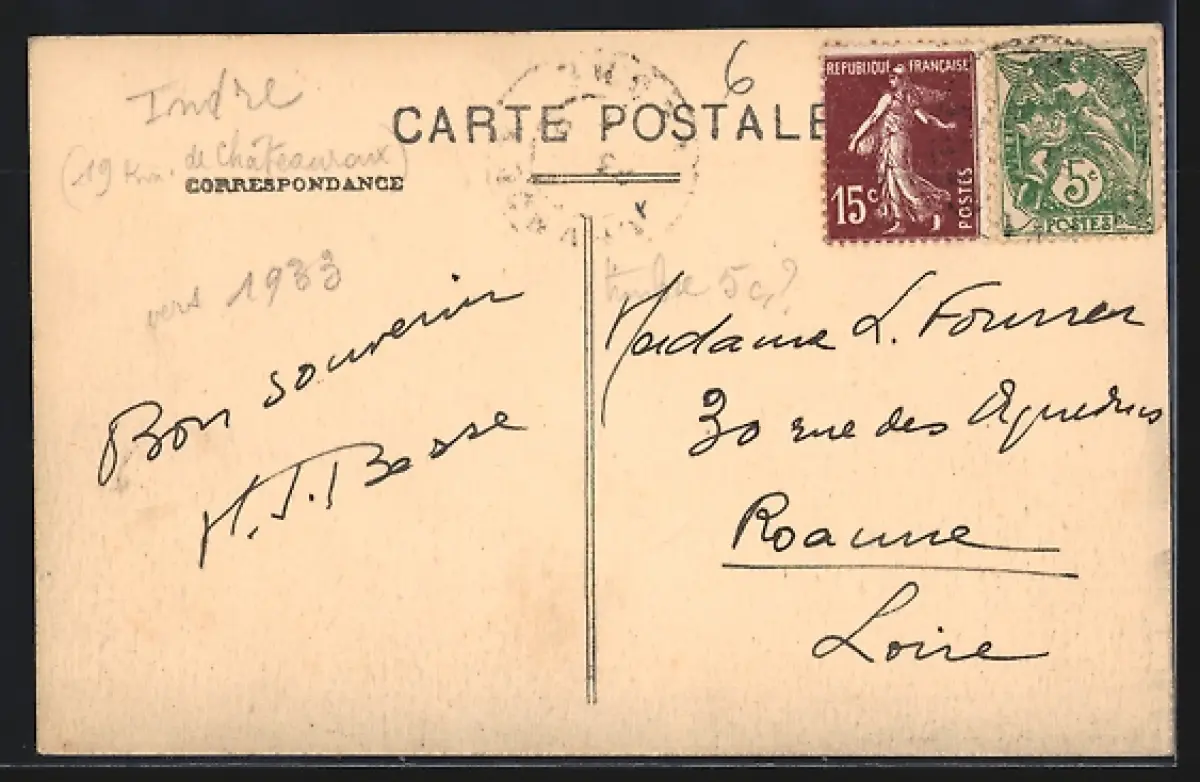 Indre
(19 km. de Châteauroux)
6
CARTE POSTALE
CORRESPONDANCE
REPUBLIQUE FRANÇAISE
15c
POSTES
5c
POSTES
vers 1933
timbre 5c,?
Bon souvenir
H. J. Besse
Madame L. Fournier
30 rue des Aqueducs
Roanne
Loire